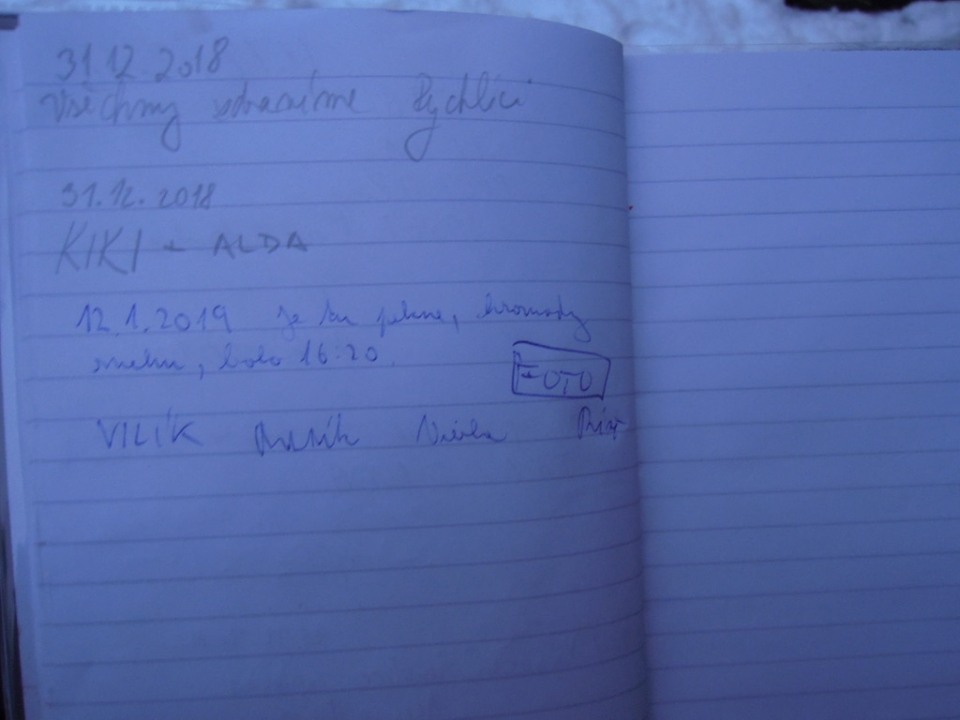 31 12 2018
Všechny zdravíme Rychlíci
31.12.2018
KIKI + ALDA
12.1.2019 je tu pekne, hromady
snehu, bolo 16:20.
FOTO
VILÍK